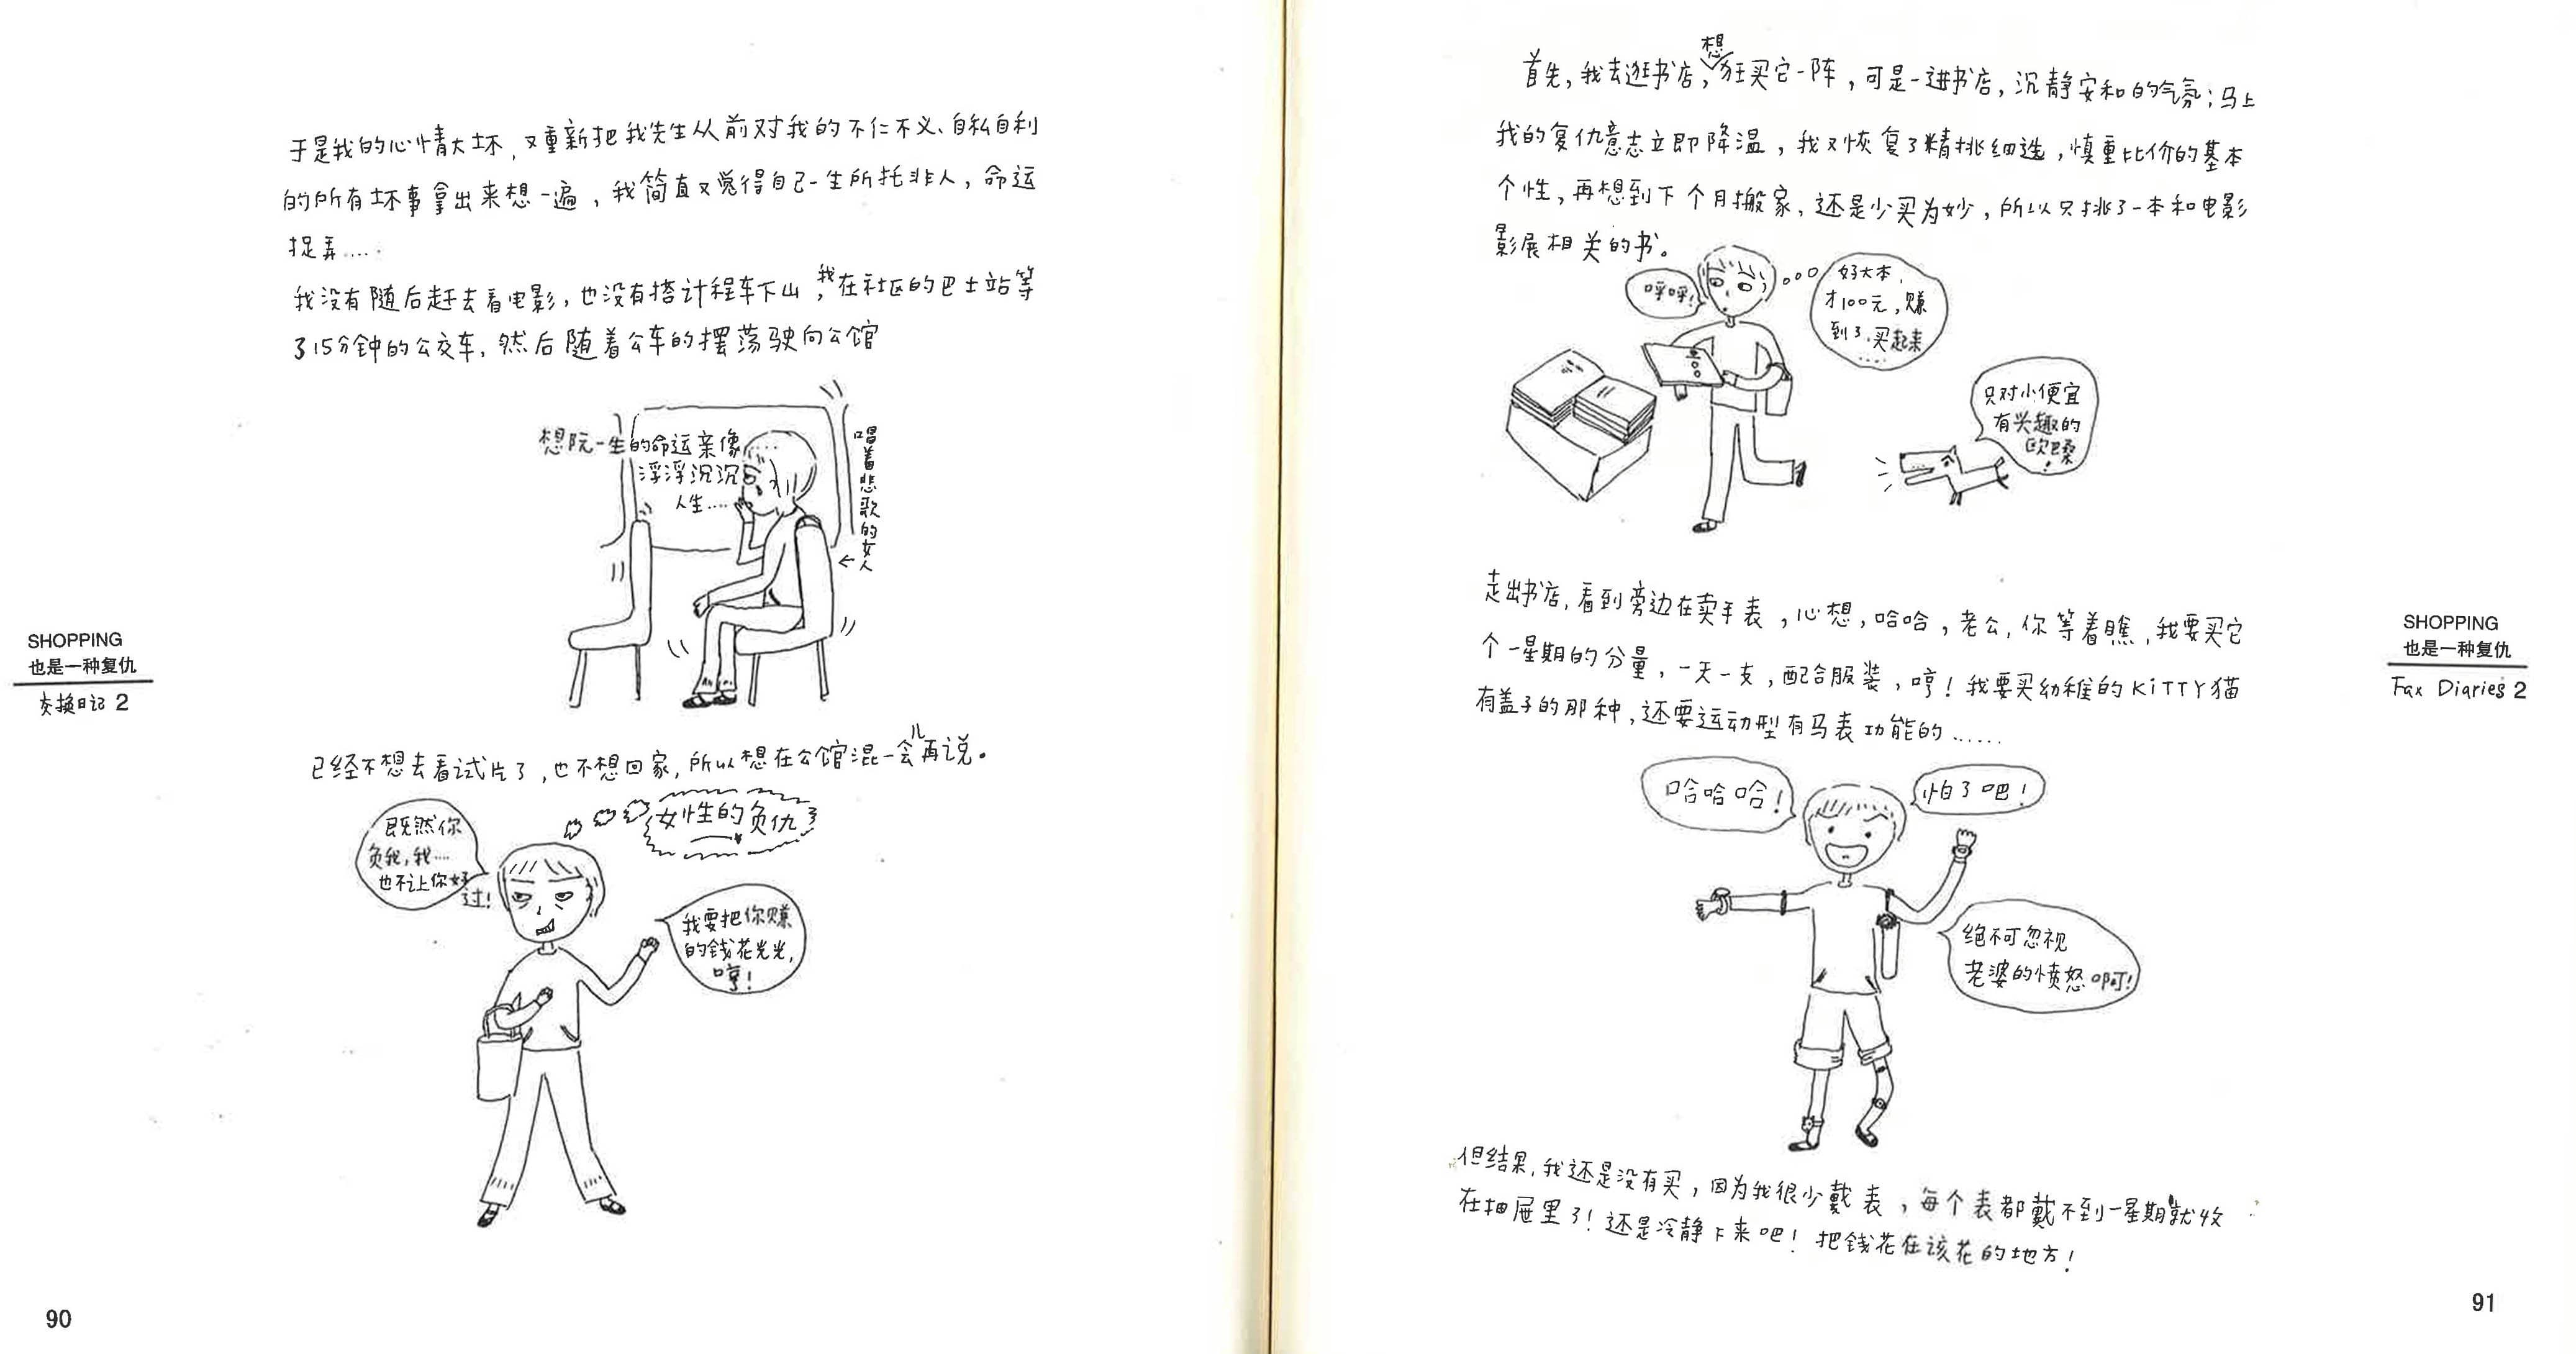 于是我的心情大坏，又重新把我先生从前对我的不仁不义、自私自利
的所有坏事拿出来想一遍，我简直又觉得自己一生所托非人，命运
捉弄……
我没有随后赶去看电影，也没有搭计程车下山，我在社区的巴士站等
了15分钟的公交车，然后随着公车的摆荡驶向公馆
想阮一生的命运亲像
浮浮沉沉
人生……
唱着悲歌的女人
已经不想去看试片了，也不想回家，所以想在公馆混一会儿再说。
既然你
负我，我……
也不让你好
过！
女性的负仇
我要把你赚
的钱花光光，
哼！
SHOPPING
也是一种复仇
交换日记 2
90
首先，我去逛书店，想狂买它一阵，可是一进书店，沉静安和的气氛；马上
我的复仇意志立即降温，我又恢复了精挑细选，慎重比价的基本
个性，再想到下个月搬家，还是少买为妙，所以只挑了一本和电影
影展相关的书。
呼呼！
好大本，
才100元，赚
到了，买起来
……
只对小便宜
有兴趣的
欧巴桑
！
走出书店，看到旁边在卖手表，心想，哈哈，老公，你等着瞧，我要买它
个一星期的分量，一天一支，配合服装，哼！我要买幼稚的KiTTY猫
有盖子的那种，还要运动型有马表功能的……
哈哈哈！
怕了吧！
绝不可忽视
老婆的愤怒啊！
但结果，我还是没有买，因为我很少戴表，每个表都戴不到一星期就收
在抽屉里了！还是冷静下来吧！把钱花在该花的地方！
SHOPPING
也是一种复仇
Fax Diaries 2
91